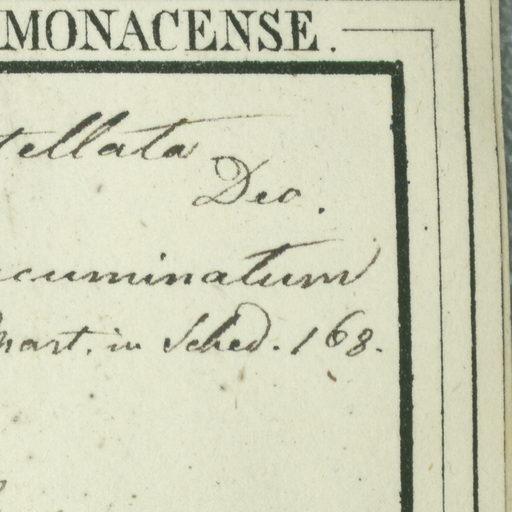 MONACENSE.
tellata
Dec.
cuminatum
Mart. in Sched. 168.